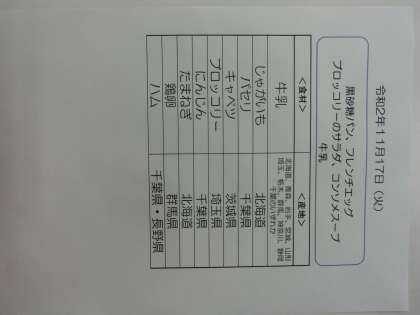 令和2年11月17日（火）
黒砂糖パン、フレンチエッグ
ブロッコリーのサラダ、コンソメスープ
牛乳
＜食材＞ ＜産地＞
牛乳 北海道、青森、岩手、宮城、山形
埼玉、栃木、群馬、神奈川、静岡
千葉のいずれか
じゃがいも 北海道
パセリ 千葉県
キャベツ 茨城県
ブロッコリー 埼玉県
にんじん 千葉県
たまねぎ 北海道
鶏卵 群馬県
ハム 千葉県・長野県